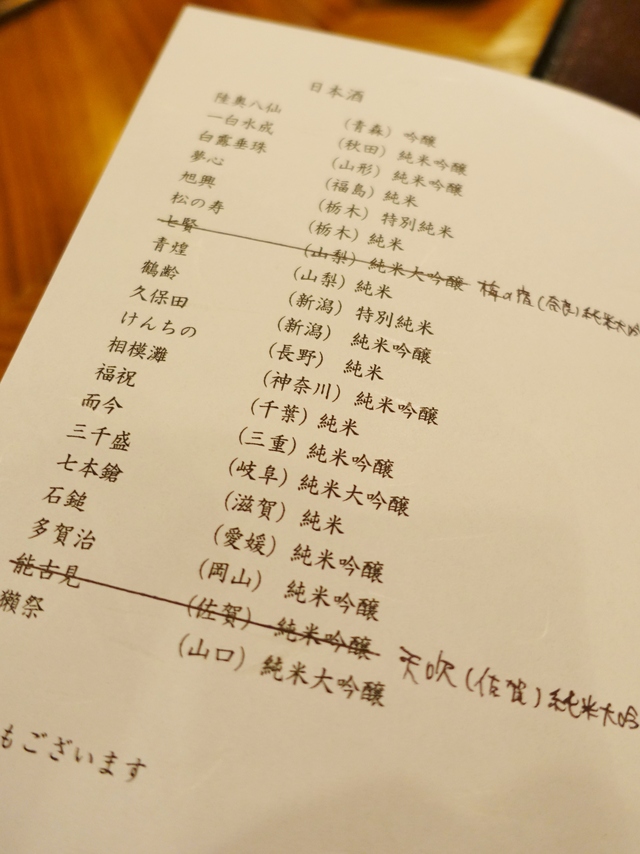 日本酒
陸奥八仙 (青森) 吟醸
一白水成 (秋田) 純米吟醸
白露垂珠 (山形) 純米吟醸
夢心 (福島) 純米
旭興 (栃木) 特別純米
松の寿 (栃木) 純米
七賢 (山梨) 純米大吟醸 梅の宿(奈良)純米大吟
青煌 (山梨) 純米
鶴齢 (新潟) 特別純米
久保田 (新潟) 純米吟醸
けんちの (長野) 純米
相模灘 (神奈川) 純米吟醸
福祝 (千葉) 純米
而今 (三重) 純米吟醸
三千盛 (岐阜) 純米大吟醸
七本鎗 (滋賀) 純米
石鎚 (愛媛) 純米吟醸
多賀治 (岡山) 純米吟醸
能古見 (佐賀) 純米吟醸 天吹(佐賀)純米大吟
獺祭 (山口) 純米大吟醸
もございます